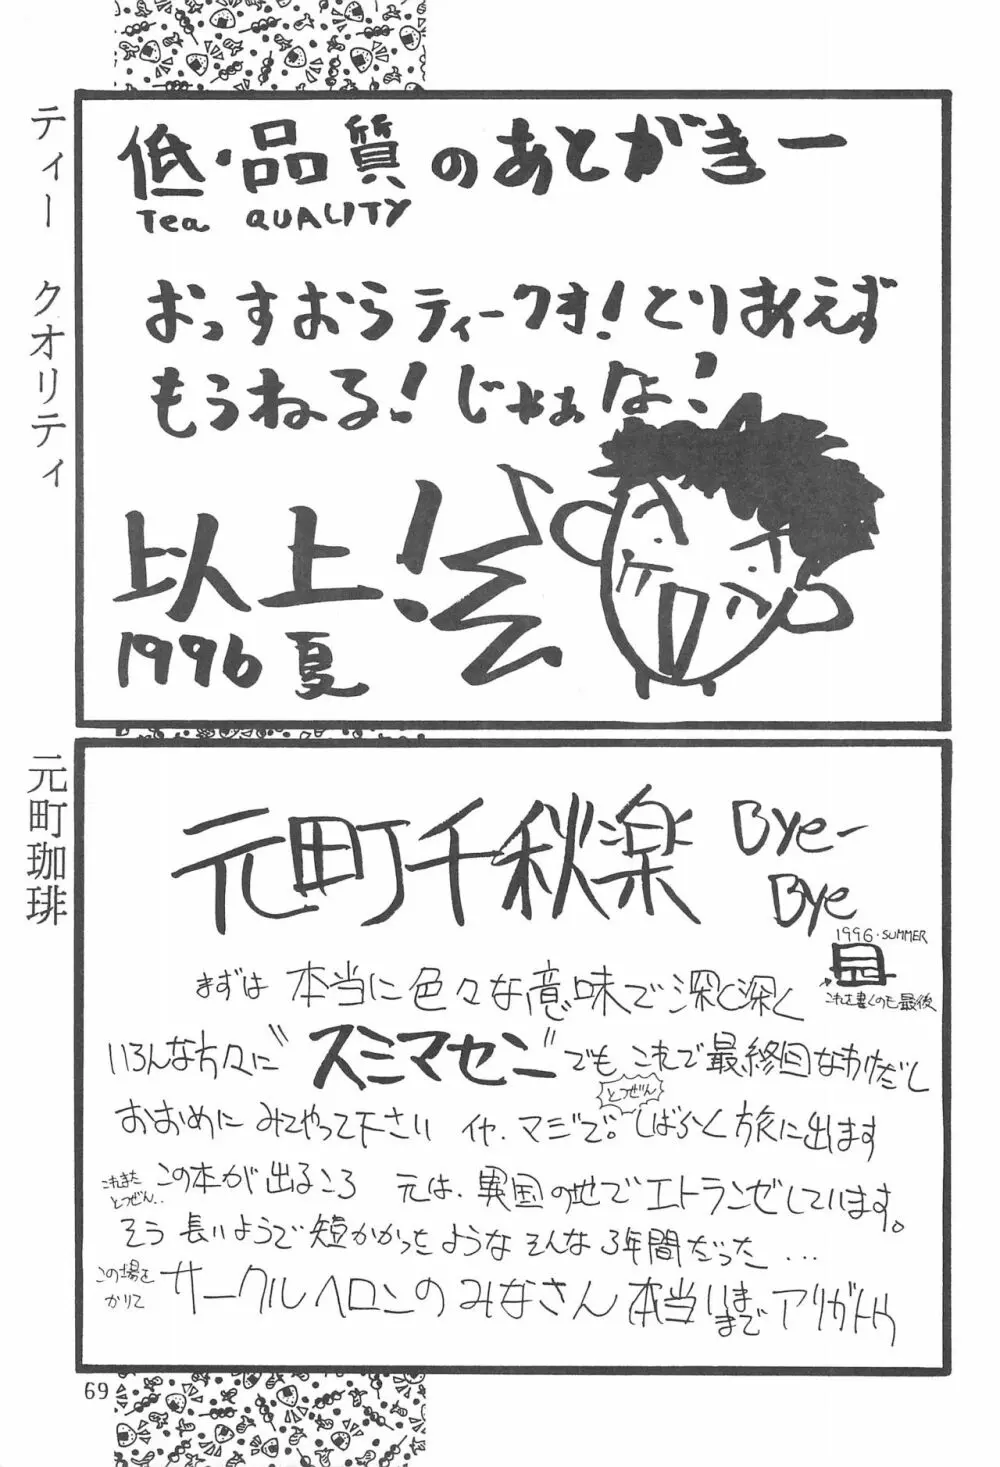 ティー クオリティ
低・品質のあとがきー
Tea QUALITY
おっすおらティークオ!とりあえず
もうねる!じゃぁな!
以上!
1996 夏
元町珈琲
元町千秋楽
Bye-
Bye
1996・SUMMER
これを書くのも最後
まずは 本当に色々な意味で深く深く
いろんな方々に〝スミマセン〟でも これで最終回なわけだし
おおめに みてやって下さい イヤ、マジで。しばらく旅に出ます
とつぜん
これまた
とつぜん..
この本が 出るころ 元は、異国の地でエトランゼしています。
そう 長いようで短かかったような そんな 3年間だった...
この場を
かりて
サークルヘロンのみなさん 本当いままで アリガトウ
69